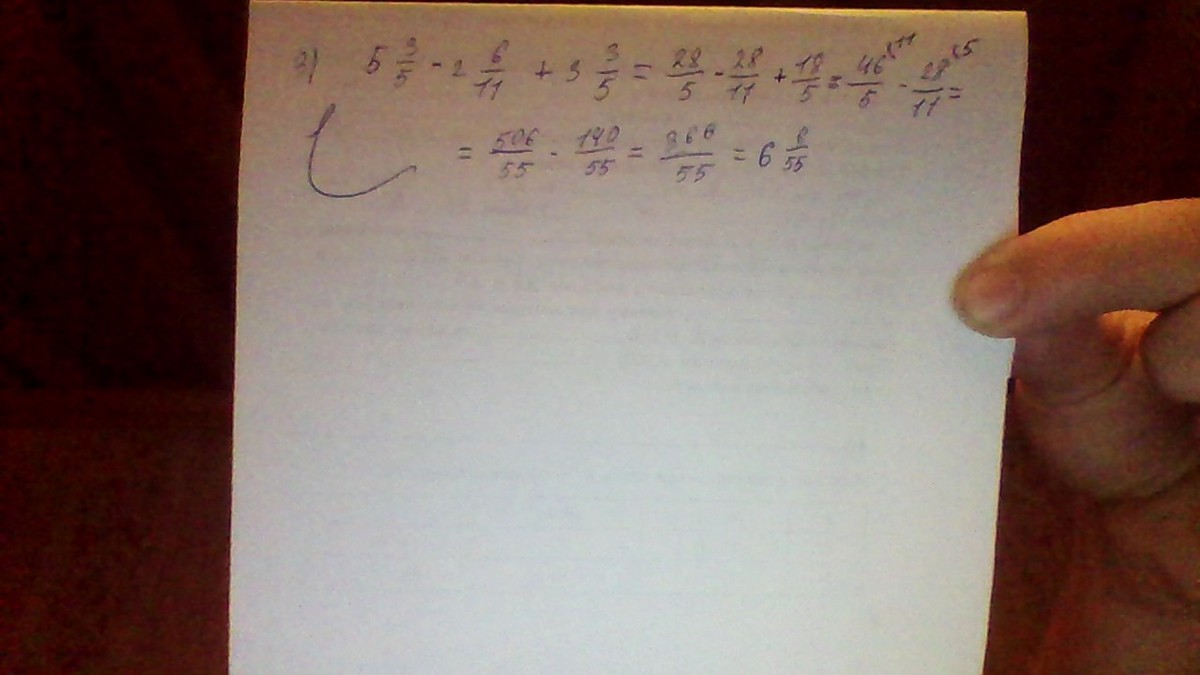 3) 5 3/5 - 2 6/11 + 3 3/5 = 28/5 - 28/11 + 18/5 = 46/5 ×11 - 28/11 ×5 =
= 506/55 - 140/55 = 366/55 = 6 8/55